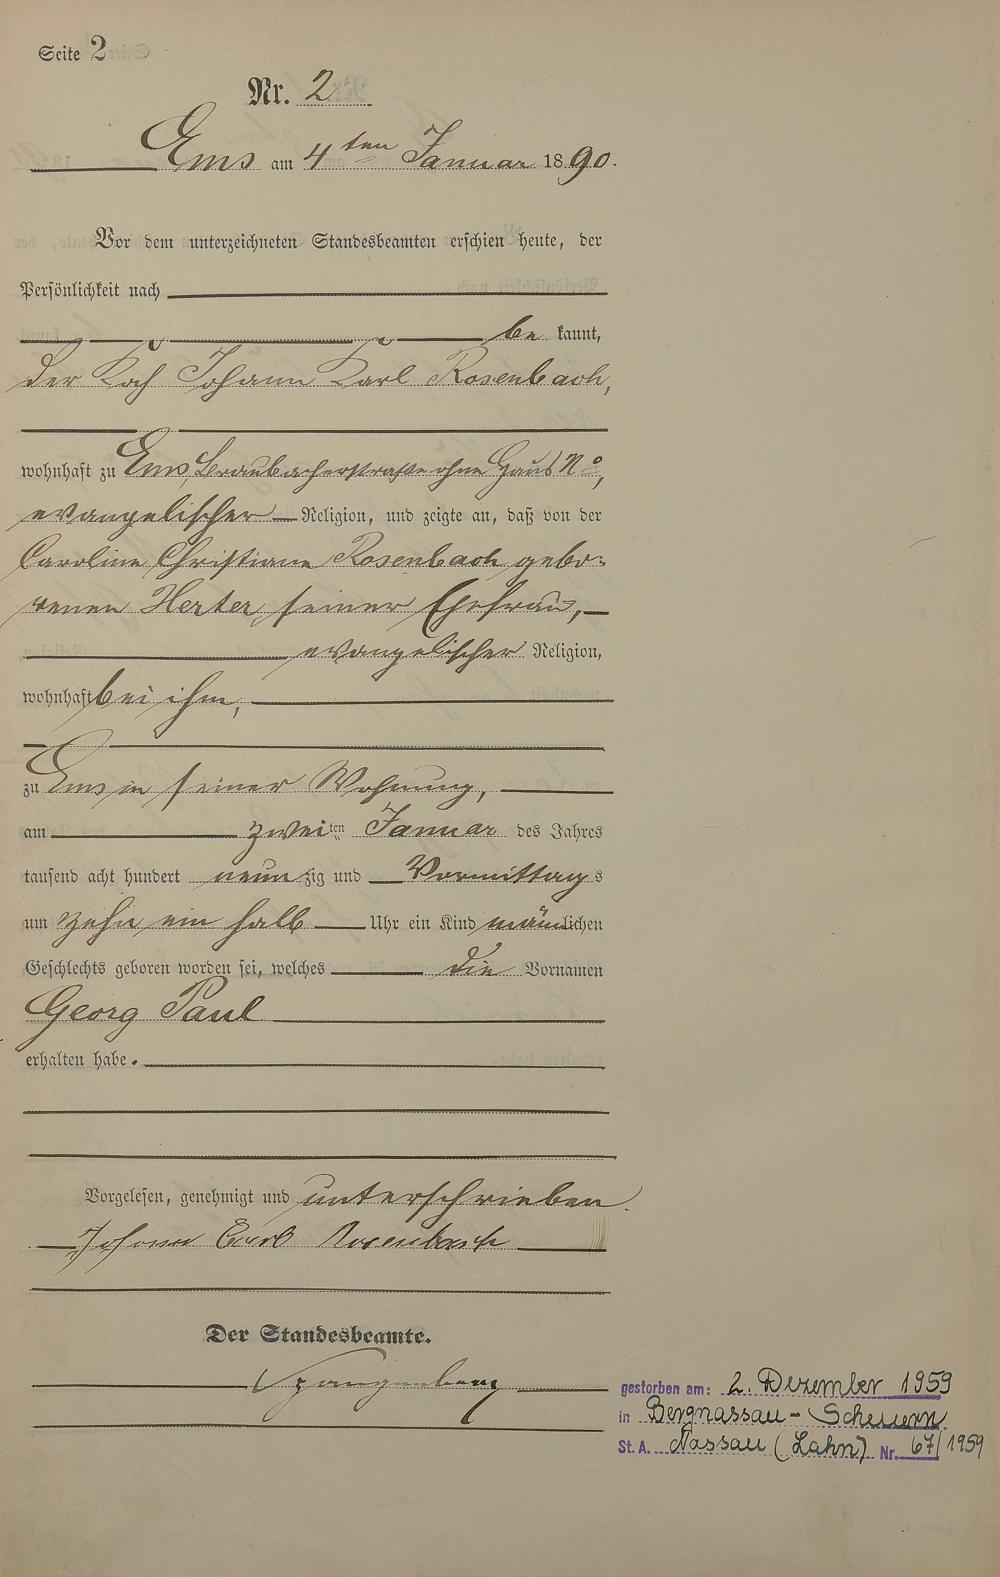 Seite 2
Nr. 2
Ems am 4ten Januar 1890.
Vor dem unterzeichneten Standesbeamten erschien heute, der
Persönlichkeit nach
be kannt,
der Koch Johann Karl Rosenbach,
wohnhaft zu Ems, Braubacherstraße ohne Haus No,
evangelischer Religion, und zeigte an, daß von der
Caroline Christiane Rosenbach gebo-
renen Herter, seiner Ehefrau,
evangelischer Religion,
wohnhaft bei ihm,
zu Ems in seiner Wohnung,
am zweiten Januar des Jahres
tausend acht hundert neunzig und Vormittags
um zehn ein halb Uhr ein Kind männlichen
Geschlechts geboren worden sei, welches die Vornamen
Georg Paul
erhalten habe.
Vorgelesen, genehmigt und unterschrieben.
Johann Carl Rosenbach
Der Standesbeamte.
Spangenberg
gestorben am: 2. Dezember 1959
in Bergnassau - Scheuern
St. A. Nassau (Lahn) Nr. 67/1959